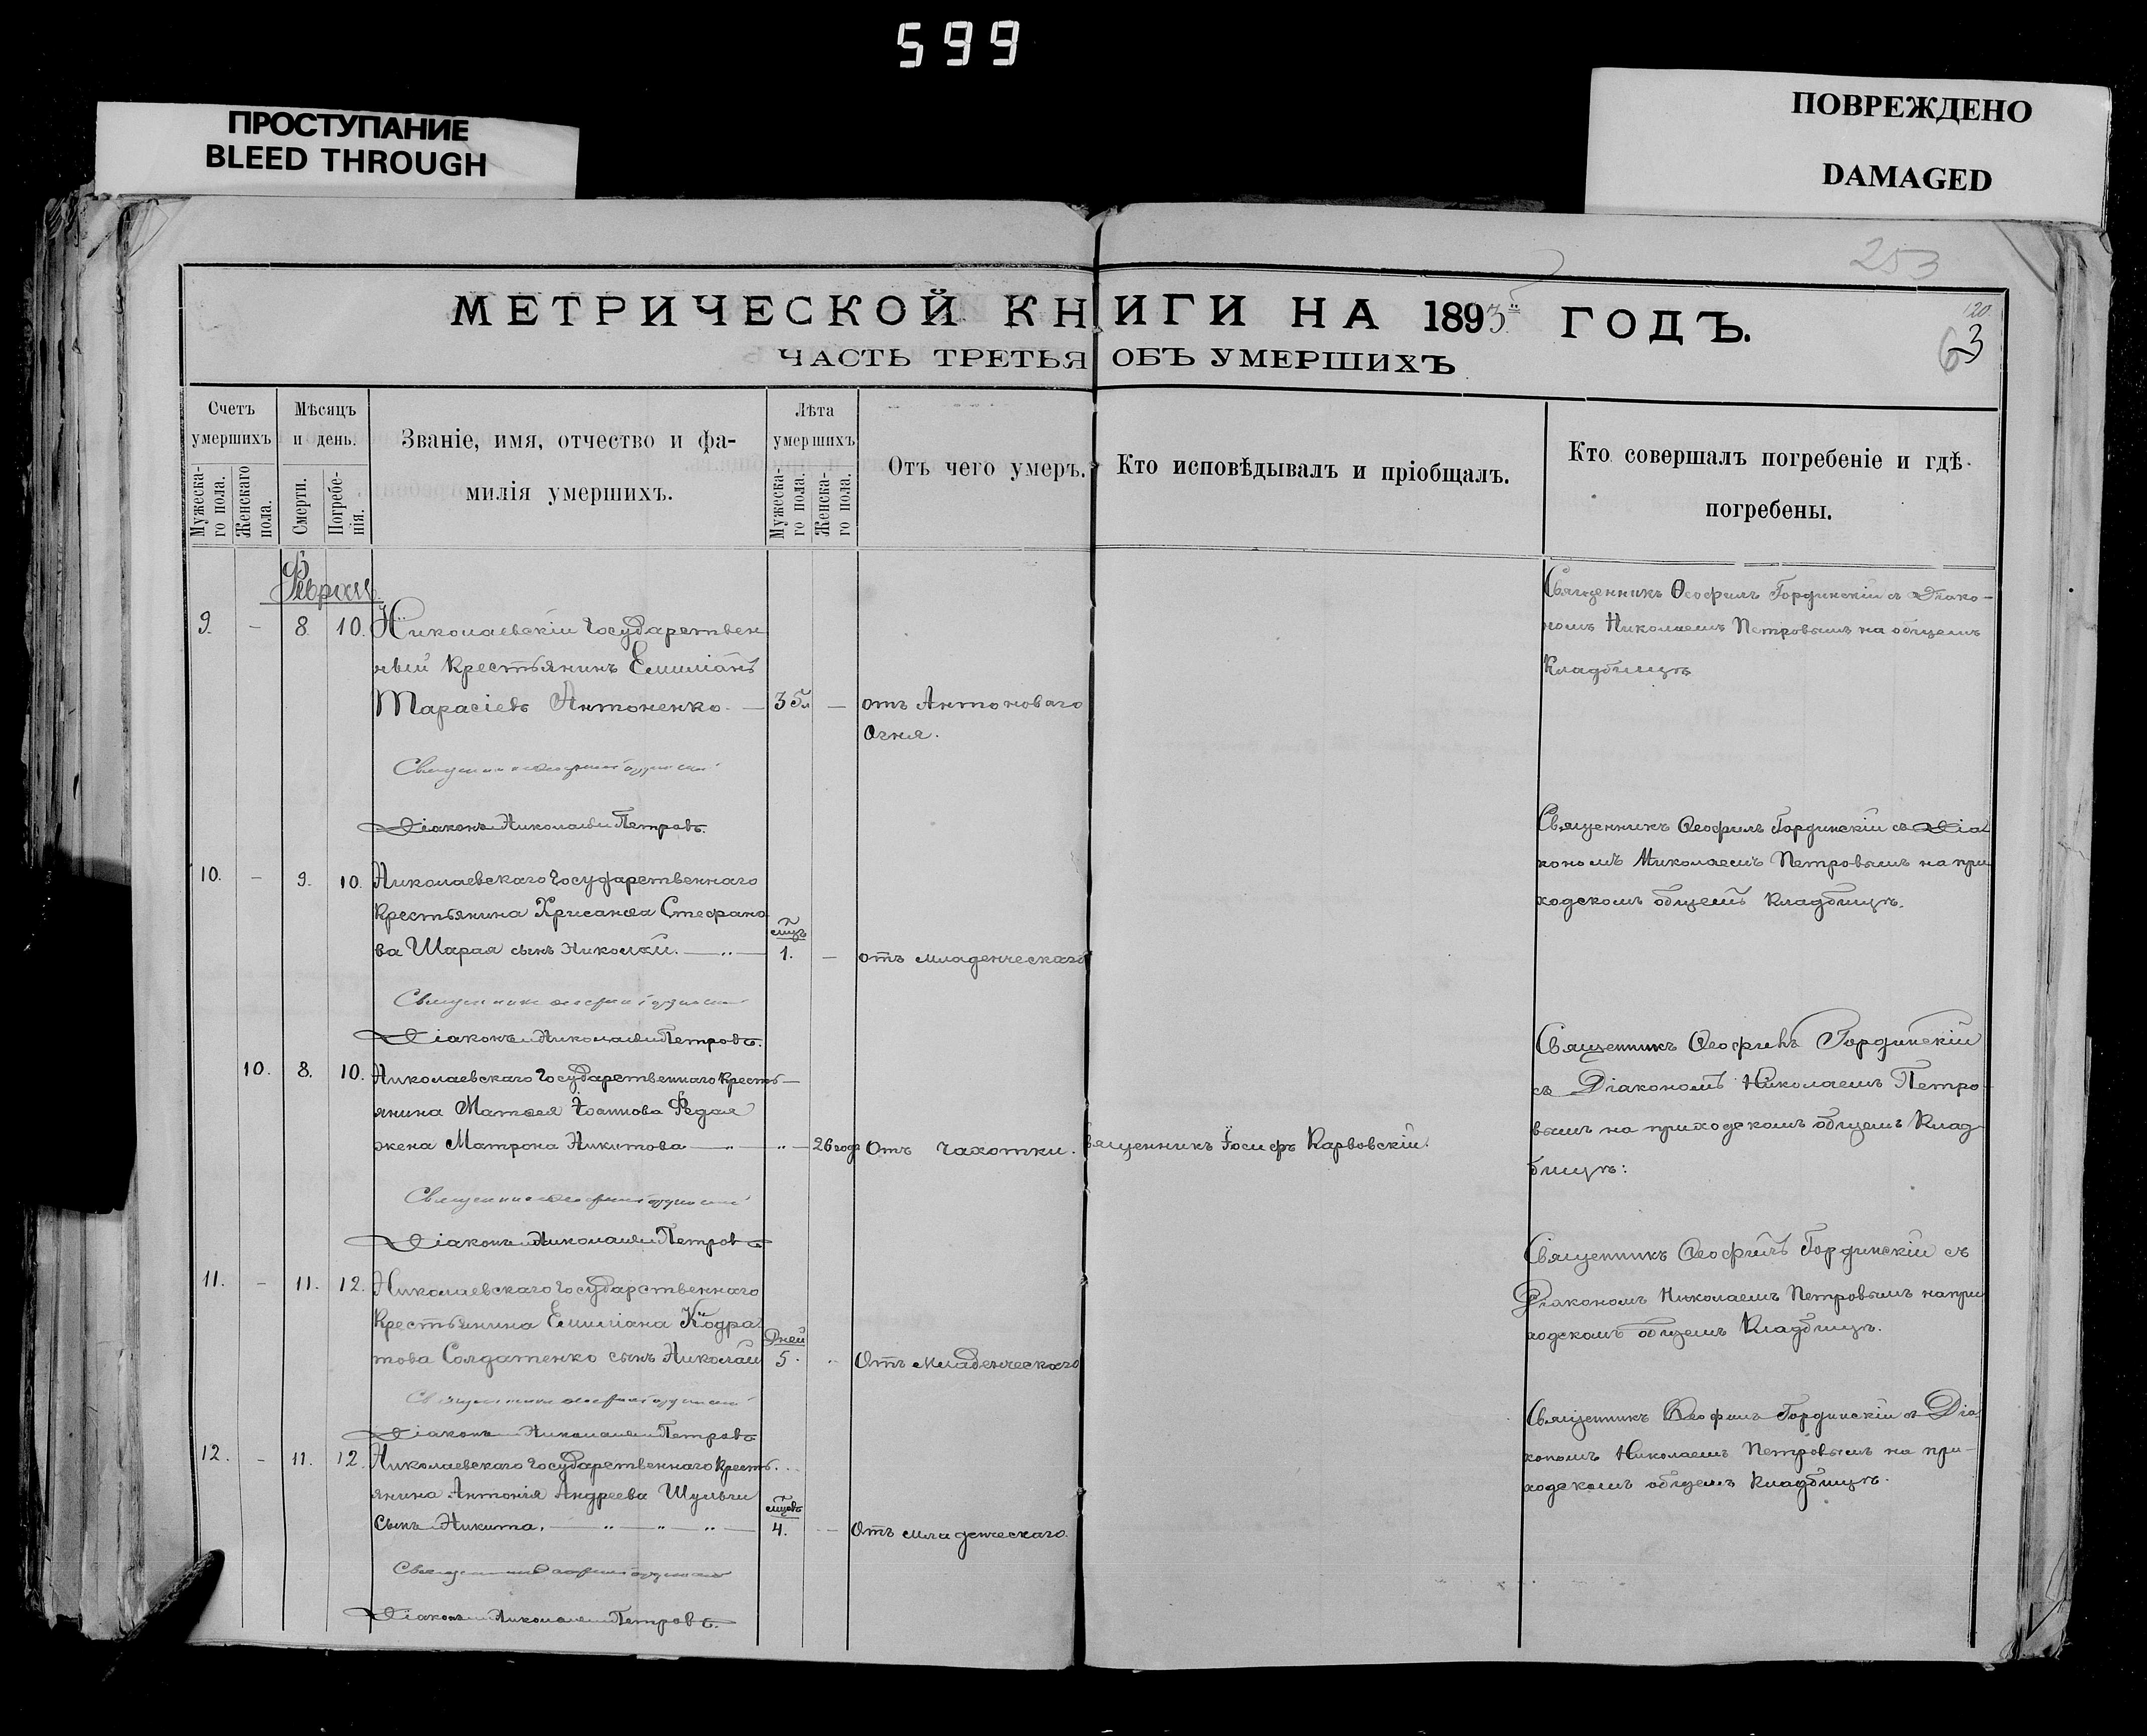 599
ПРОСТУПАНИЕ
BLEED THROUGH
ПОВРЕЖДЕНО
DAMAGED
253
МЕТРИЧЕСКОЙ КНИГИ НА 1893й ГОДЪ.
120
63
ЧАСТЬ ТРЕТЬЯ ОБЪ УМЕРШИХЪ
Счетъ умершихъ
Мужеска-
го пола.
Женскаго
пола.
Мѣсяцъ и день.
Смерти.
Погребе-
нія.
Званіе, имя, отчество и фа-
милія умершихъ.
Лѣта умершихъ
Мужеска-
го пола.
Женска-
го пола.
Отъ чего умеръ.
Кто исповѣдывалъ и пріобщалъ.
Кто совершалъ погребеніе и гдѣ
погребены.
Февраль
9. – 8. 10. Николаевскій Государствен
ный крестьянинъ Емиліанъ
Тарасіевъ Антоненко. — 35л — отъ Антоноваго
Огня.
Священникъ Ѳеофилъ Гординскій съ Діако-
номъ Николаемъ Петровымъ на общемъ
Кладбищѣ
Священникъ Ѳеофилъ Гординскій
Діаконъ Николай Петровъ.
10. – 9. 10. Николаевскаго Государственнаго
Крестьянина Хрисанѳа Стефано
ва Шарая сынъ Николай. — „ — мцъ 1. — отъ младенческаго
Священникъ Ѳеофилъ Гординскій съ Діа
кономъ Николаемъ Петровымъ на при
ходскомъ общемъ Кладбищѣ.
Священникъ Ѳеофилъ Гординскій
Діаконъ Николай Петровъ.
10. 8. 10. Николаевскаго Государственнаго Кресть—
янина Матѳея Іоаннова Федая
жена Матрона Никитова — „ — „ — 26 год Отъ чахотки. Священникъ Іосифъ Карвовскій.
Священникъ Ѳеофилъ Гординскій
съ Діакономъ Николаемъ Петро
вымъ на приходскомъ общемъ Клад
бищѣ:
Священникъ Ѳеофилъ Гординскій
Діаконъ Николай Петровъ
11. – 11. 12. Николаевскаго Государственнаго
Крестьянина Емиліана Кодра
това Солдатенко сынъ Николай Дней 5. – Отъ Младенческаго
Священникъ Ѳеофилъ Гординскій съ
Діакономъ Николаемъ Петровымъ на при
ходскомъ общемъ Кладбищѣ.
Священникъ Ѳеофилъ Гординскій
Діаконъ Николай Петровъ
12. – 11. 12. Николаевскаго Государственнаго Кресть..
янина Антонія Андреева Шульги
Сынъ Никита. — „ — „ — „ — мцовъ 4. – Отъ младенческаго.
Священникъ Ѳеофилъ Гординскій съ Діа
кономъ Николаемъ Петровымъ на при-
ходскомъ общемъ Кладбищѣ.
Священникъ Ѳеофилъ Гординскій
Діаконъ Николай Петровъ.